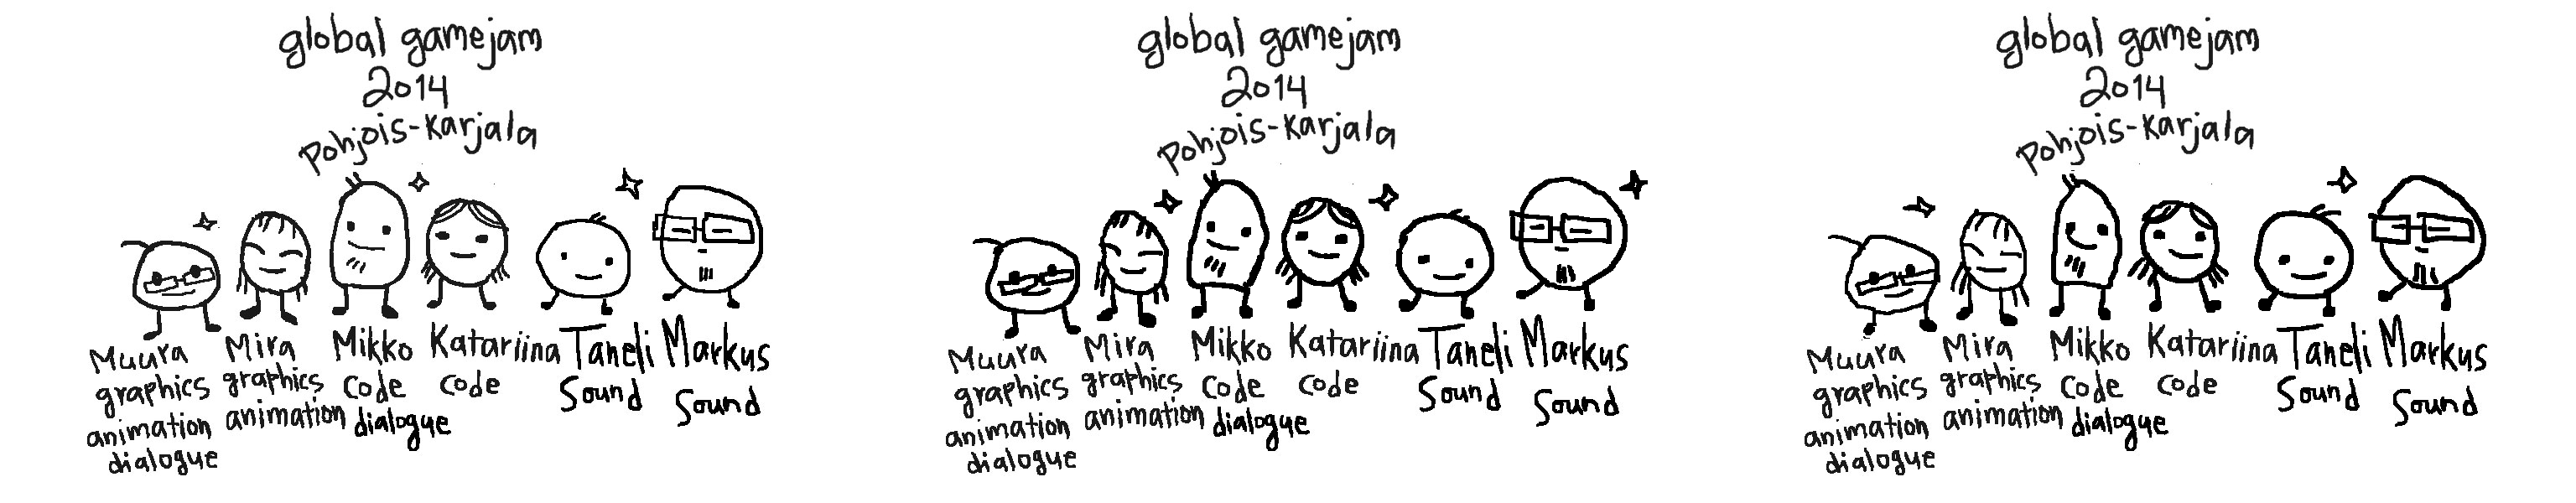 global gamejam
2014
Pohjois-Karjala
Muura
graphics
animation
dialogue
Mira
graphics
animation
Mikko
code
dialogue
Katariina
code
Taneli
Sound
Markus
Sound
global gamejam
2014
Pohjois-Karjala
Muura
graphics
animation
dialogue
Mira
graphics
animation
Mikko
code
dialogue
Katariina
code
Taneli
Sound
Markus
Sound
global gamejam
2014
Pohjois-Karjala
Muura
graphics
animation
dialogue
Mira
graphics
animation
Mikko
code
dialogue
Katariina
code
Taneli
Sound
Markus
Sound